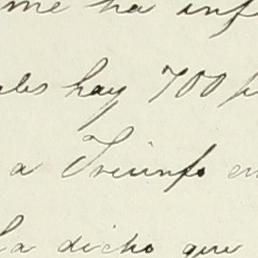 me ha inf
les hay 700 p
a Triunfo en
la dicho que